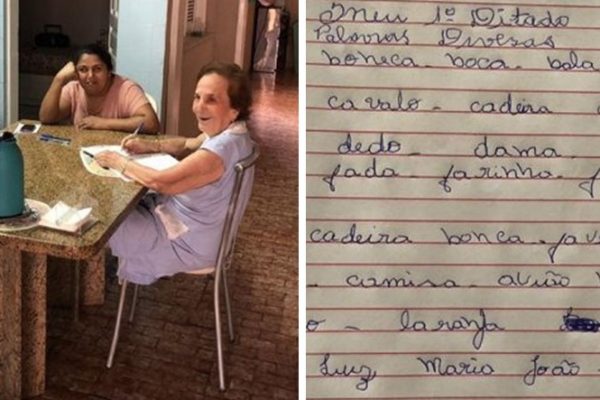 Meu 1º Ditado
Palavras Diversas
boneca - boca - bola
cavalo - cadeira
dedo - dama -
fada - farinha - f
cadeira bonca - fav
- camisa - avião
o - laranja
Luz, Maria João